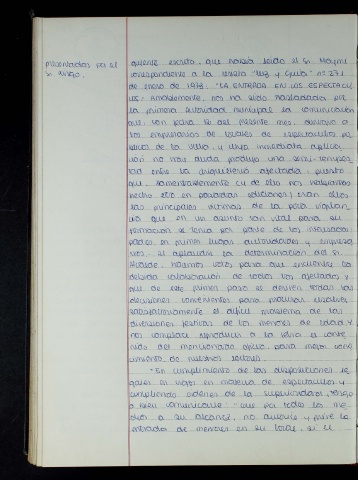 presentadas por el
Sr. Riesgo.
guiente escrito, que había leído el Sr.
correspondiente a la revista "Luz y Guía" nº 271
de enero de 1973. "LA ENTRADA EN LOS ESPECTACU
LOS: Amablemente, nos ha sido trasladada por
la primera autoridad municipal la comunicación
que, con fecha 12 del presente mes, dirigió a
los empresarios de locales de espectáculos pú
blicos de la Villa y cuya inmediata aplica
ción no hay duda produjo una
entre la chiquillería afectada, puesto
que, lamentablemente cual de ello nos habíamos
hecho eco en pasadas ediciones, eran ellos
las principales víctimas de la poca vigilan
cia que en un asunto tan vital para su
formación se tenía por parte de los
padres en primer lugar, autoridades y empresa
rios. Al aplaudir la determinación del Sr.
Alcalde, hacemos votos para que encuentre la
debida colaboración de todos los afectados y
que de este primer paso se deriven todas las
decisiones convenientes para procurar resolver
satisfactoriamente el difícil problema de las
diversiones festivas de los menores de edad y
nos complace reproducir a la letra el conte
nido del mencionado oficio, para mejor cono
cimiento de nuestros lectores.
"En cumplimiento de las disposiciones le
gales en vigor en materia de espectáculos y
cumpliendo órdenes de la superioridad, tengo
a bien comunicarle: que por todos los me
dios a su alcance, no autorice y prive la
entrada de menores en su local, si el